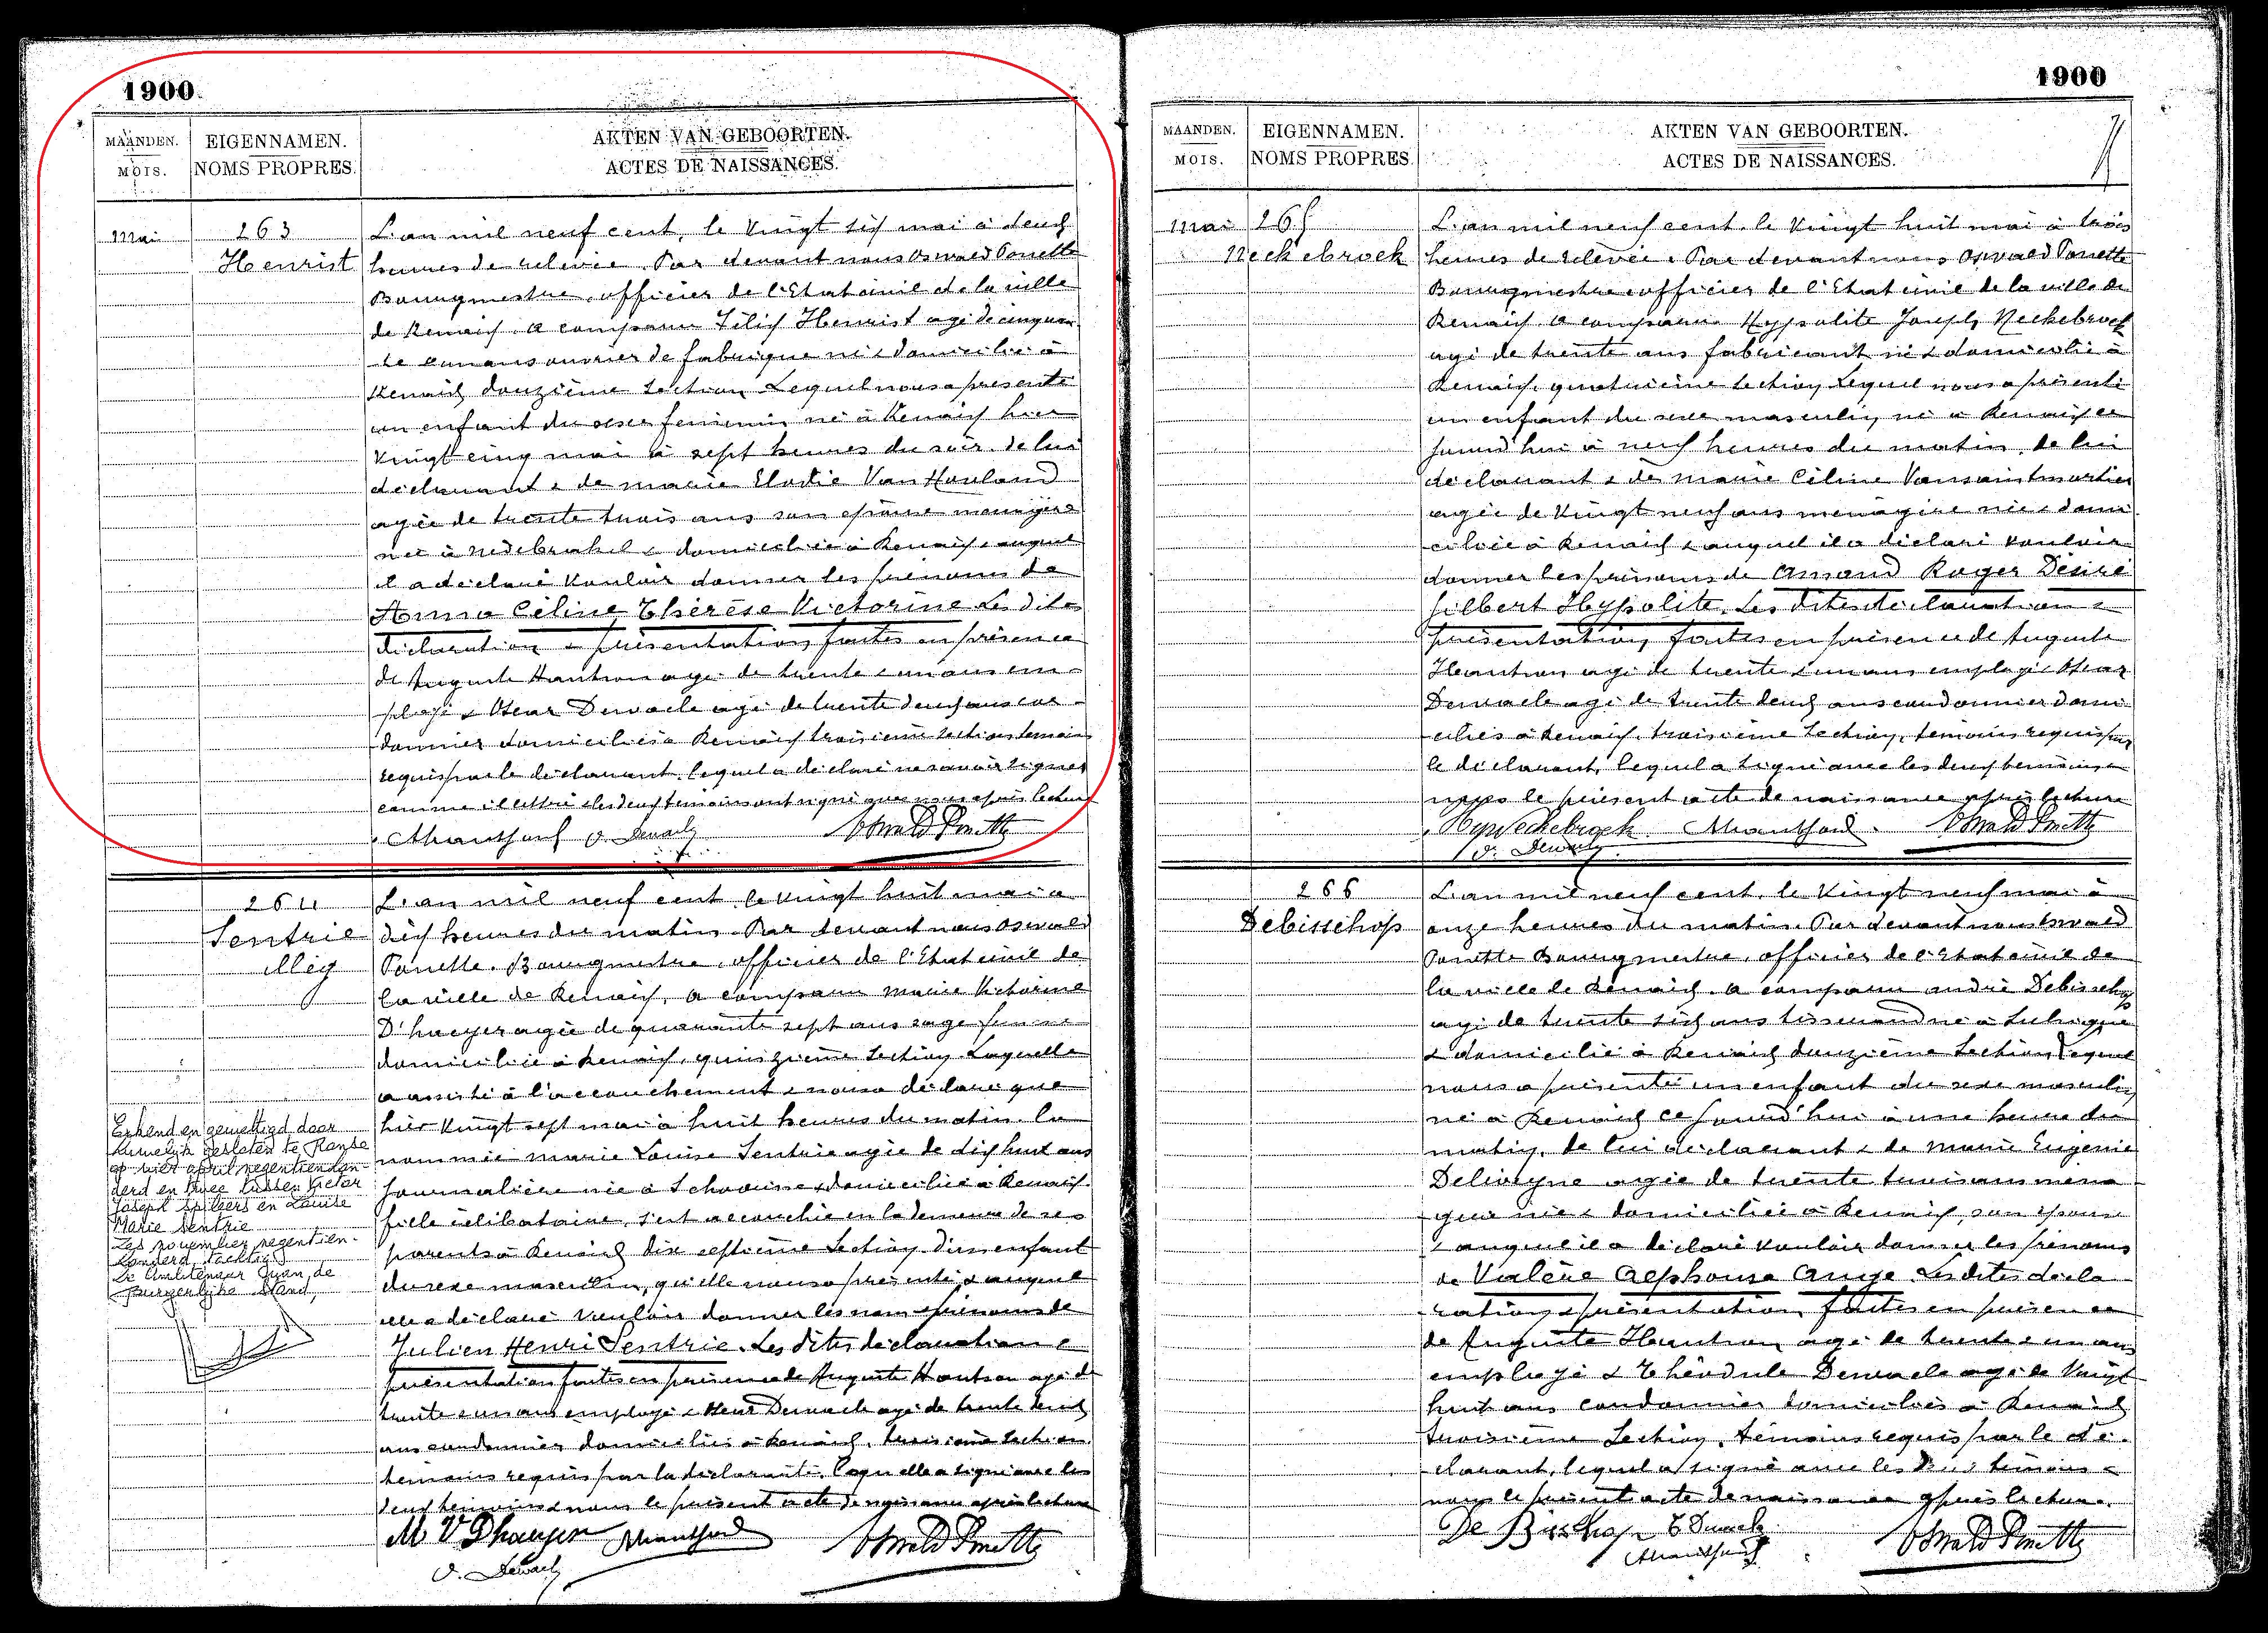 1900.
MAANDEN.
MOIS.
EIGENNAMEN.
NOMS PROPRES.
AKTEN VAN GEBOORTEN.
ACTES DE NAISSANCES.
Mai
263
Henrist
L'an mil neuf cent, le vingt six mai à deux
heures de relevée. Par devant nous Oswald Ponette
Bourgmestre, officier de l'Etat civil de la ville
de Renaix, a comparu Félix Henrist agé de cinquan
te un ans ouvrier de fabrique né & domicilié à
Renaix douzième section Lequel nous a présenté
un enfant du sexe féminin né à Renaix hier
vingt cinq mai à sept heures du soir, de lui
déclarant & de marie Elodie Van
agée de trente trois ans son épouse ménagère
née à Nederbrakel & domiciliée à Renaix, auquel
il a déclaré vouloir donner les prénoms de
Anna Céline Thérèse Victorine Les dites
déclaration & présentation faites en présence
de Auguste Hantson agé de trente un ans em
ployé & Oscar Dewaele agé de trente deux ans cor
donnier domiciliés à Renaix troisième section témoins
requis par le déclarant, lequel a déclaré ne savoir signer
comme illettré & les deux témoins ont signé avec nous après lecture
AHantson O. Dewaele Oswald Ponette
264
Sentrie
illég
L'an mil neuf cent, le vingt huit mai à
dix heures du matin. Par devant nous Oswald
Ponette, Bourgmestre, officier de l'Etat civil de
la ville de Renaix, a comparu Marie Victorine
D'haeyer agée de quarante sept ans sage femme
domiciliée à Renaix, quinzième section Laquelle
a assisté à l'accouchement & nous a déclaré que
hier vingt sept mai à huit heures du matin la
nommée marie Louise Sentrie agée de dix huit ans
journalière née à Schoorisse & domiciliée à Renaix
fille célibataire, s'est accouchée en la demeure de ses
parents à Renaix dix septième section d'un enfant
du sexe masculin, qu'elle nous a présenté & auquel
elle a déclaré vouloir donner les nom & prénoms de
Julien Henri Sentrie. Les dites déclaration &
présentation faites en présence de Auguste Hantson agé de
trente un ans employé & Oscar Dewaele agé de trente deux
ans cordonnier domiciliés à Renaix, troisième section
témoins requis par la déclarante, laquelle a signé avec les
deux témoins & nous le présent acte de naissance après lecture
M V Dhaeyer AHantson Oswald Ponette
O. Dewaele
Erkend en gewettigd door
huwelijk gesloten te Ronse
op vier april negentienhon-
derd en twee tussen Victor
Joseph Spileers en Louise
Marie Sentrie
Zes november negentien-
honderd tachtig
De Ambtenaar van de
Burgerlijke Stand,
1900
MAANDEN.
MOIS.
EIGENNAMEN.
NOMS PROPRES.
AKTEN VAN GEBOORTEN.
ACTES DE NAISSANCES.
Mai
265
Neckebroek
L'an mil neuf cent, le vingt huit mai à trois
heures de relevée. Par devant nous Oswald Ponette
Bourgmestre officier de l'Etat civil de la ville de
Renaix a comparu Hyppolite Joseph Neckebroek
agé de trente ans fabricant né & domicilié à
Renaix, quatrième section Lequel nous a présenté
un enfant du sexe masculin, né à Renaix ce
jourd'hui à neuf heures du matin, de lui
déclarant & de Marie Céline Vansaintmartin
agée de vingt neuf ans ménagère née & domi
ciliée à Renaix & auquel il a déclaré vouloir
donner les prénoms de Amand Roger Désiré
Gilbert Hypolite. Les dites déclaration &
présentation faites en présence de Auguste
Hantson agé de trente un ans employé & Oscar
Dewaele agé de trente deux ans cordonnier domi
ciliés à Renaix, troisième section, témoins requis par
le déclarant, lequel a signé avec les deux témoins &
nous le présent acte de naissance après lecture
Hyp Neckebroek AHantson Oswald Ponette
O. Dewaele
266
Debisschop
L'an mil neuf cent, le vingt neuf mai à
onze heures du matin. Par devant nous Oswald
Ponette Bourgmestre, officier de l'Etat civil de
la ville de Renaix, a comparu andré Debisschop
agé de trente six ans tisserand né à
& domicilié à Renaix douzième section Lequel
nous a présenté un enfant du sexe masculin
né à Renaix ce jourd'hui à une heure du
matin, de lui déclarant & de Marie Eugenie
Delvigne agée de trente trois ans ména
gère née & domiciliée à Renaix, son épouse
& auquel il a déclaré vouloir donner les prénoms
de Valère Alphonse Ange. Les dites décla
ration & présentation faites en présence
de Auguste Hantson agé de trente un ans
employé & Théodule Dewaele agé de vingt
huit ans cordonnier domiciliés à Renaix
troisième section, témoins requis par le dé
clarant, lequel a signé avec les deux témoins &
nous le présent acte de naissance après lecture.
De Bisschop T Dewaele
AHantson Oswald Ponette